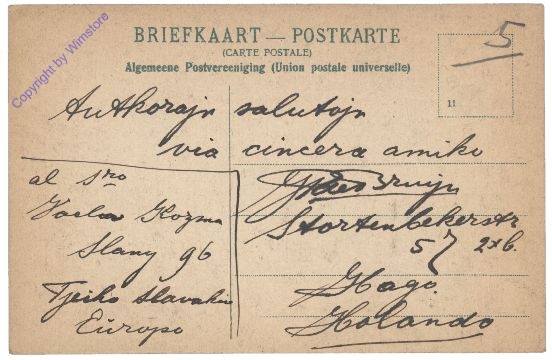 BRIEFKAART — POSTKARTE
(CARTE POSTALE)
Algemeene Postvereeniging (Union postale universelle)
5
11
Copyright by Wimstore
Antkorajn salutojn
via cincera amiko
al Sro
Vaclav Kozma
Slany 96
Tjeiko Slavakio
Europo
Bruijn
Stortenbekerstr
57 2xb.
Hago.
Holando